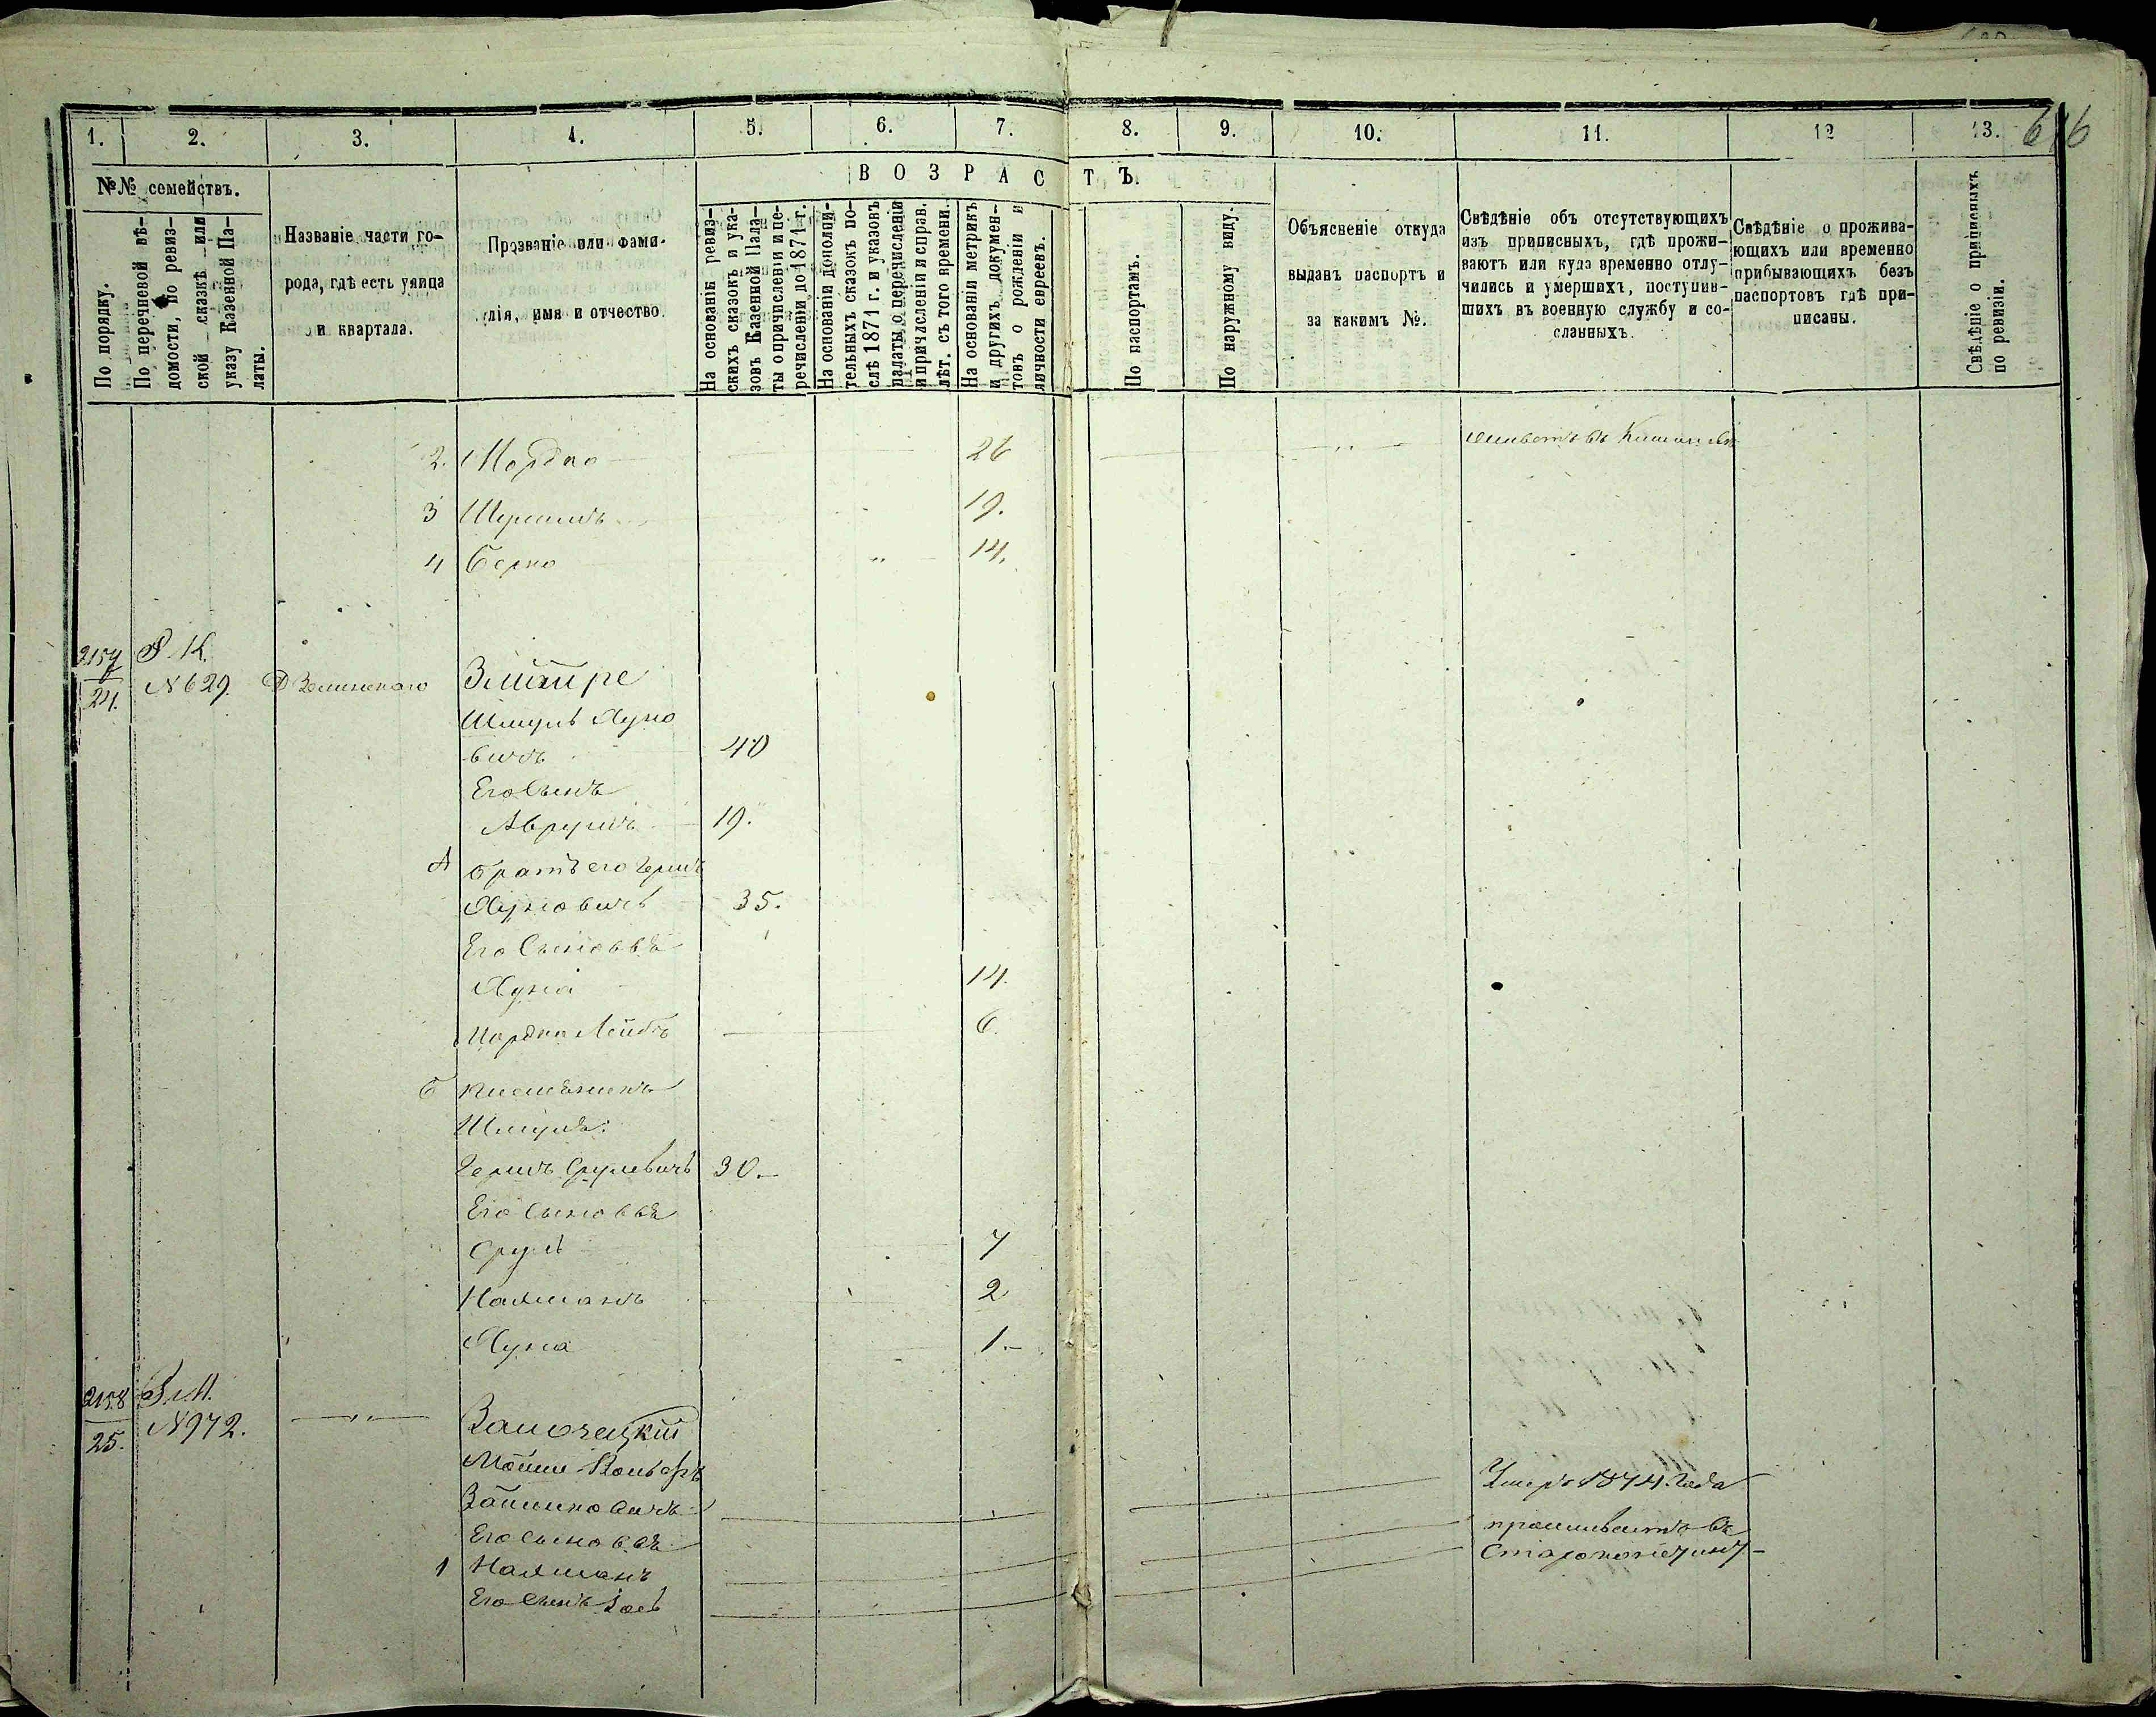 616
1. 2. 3. 4. 5. 6. 7. 8. 9. 10. 11. 12 13.
№№ семействъ.
По порядку.
По перечневой вѣ-
домости, по ревиз-
ской сказкѣ или
указу Казенной Па-
латы.
Названіе части го-
рода, гдѣ есть улица
и квартала.
Прозваніе или фами-
лія, имя и отчество.
ВОЗРАСТЪ.
На основаніи ревиз-
скихъ сказокъ и ука-
зовъ Казенной Пала-
ты о причисленіи и пе-
речисленіи до 1871 г.
На основаніи дополни-
тельныхъ сказокъ по-
слѣ 1871 г. и указовъ
палаты о перечисленіи
и причисленіи и справ.
лѣт. съ того времени.
На основаніи метрикъ
и другихъ докумен-
товъ о рожденіи и
личности евреевъ.
По паспортамъ.
По наружному виду.
Объясненіе откуда
выданъ паспортъ и
за какимъ №.
Свѣдѣніе объ отсутствующихъ
изъ приписныхъ, гдѣ прожи-
ваютъ или куда временно отлу-
чились и умершихъ, поступив-
шихъ въ военную службу и со-
сланныхъ.
Свѣдѣніе о прожива-
ющихъ или временно
прибывающихъ безъ
паспортовъ гдѣ при-
писаны.
Свѣдѣніе о приписныхъ
по ревизіи.
2. Мордко 26 въ
3 19.
4 Берко 14.
2157
24.
№ 629.
Шмуль Хуно
вичъ 40
Его Сынъ
Аврумъ 19.
А Братъ его Гершъ
Хуновичъ 35.
Его Сыновья
Хуна 14.
Мордко Лейбъ 6.
Б Племянникъ
Шмуля:
Гершъ Срулевичъ 30.
Его Сыновья
Сруль 7
Нахманъ 2
Хуна 1.
2158
25.
№ 972.
Замочецкій
Его Сыновья
1 Нахманъ
Его Сынъ Іосъ
Умеръ 1874. года
проживаетъ въ